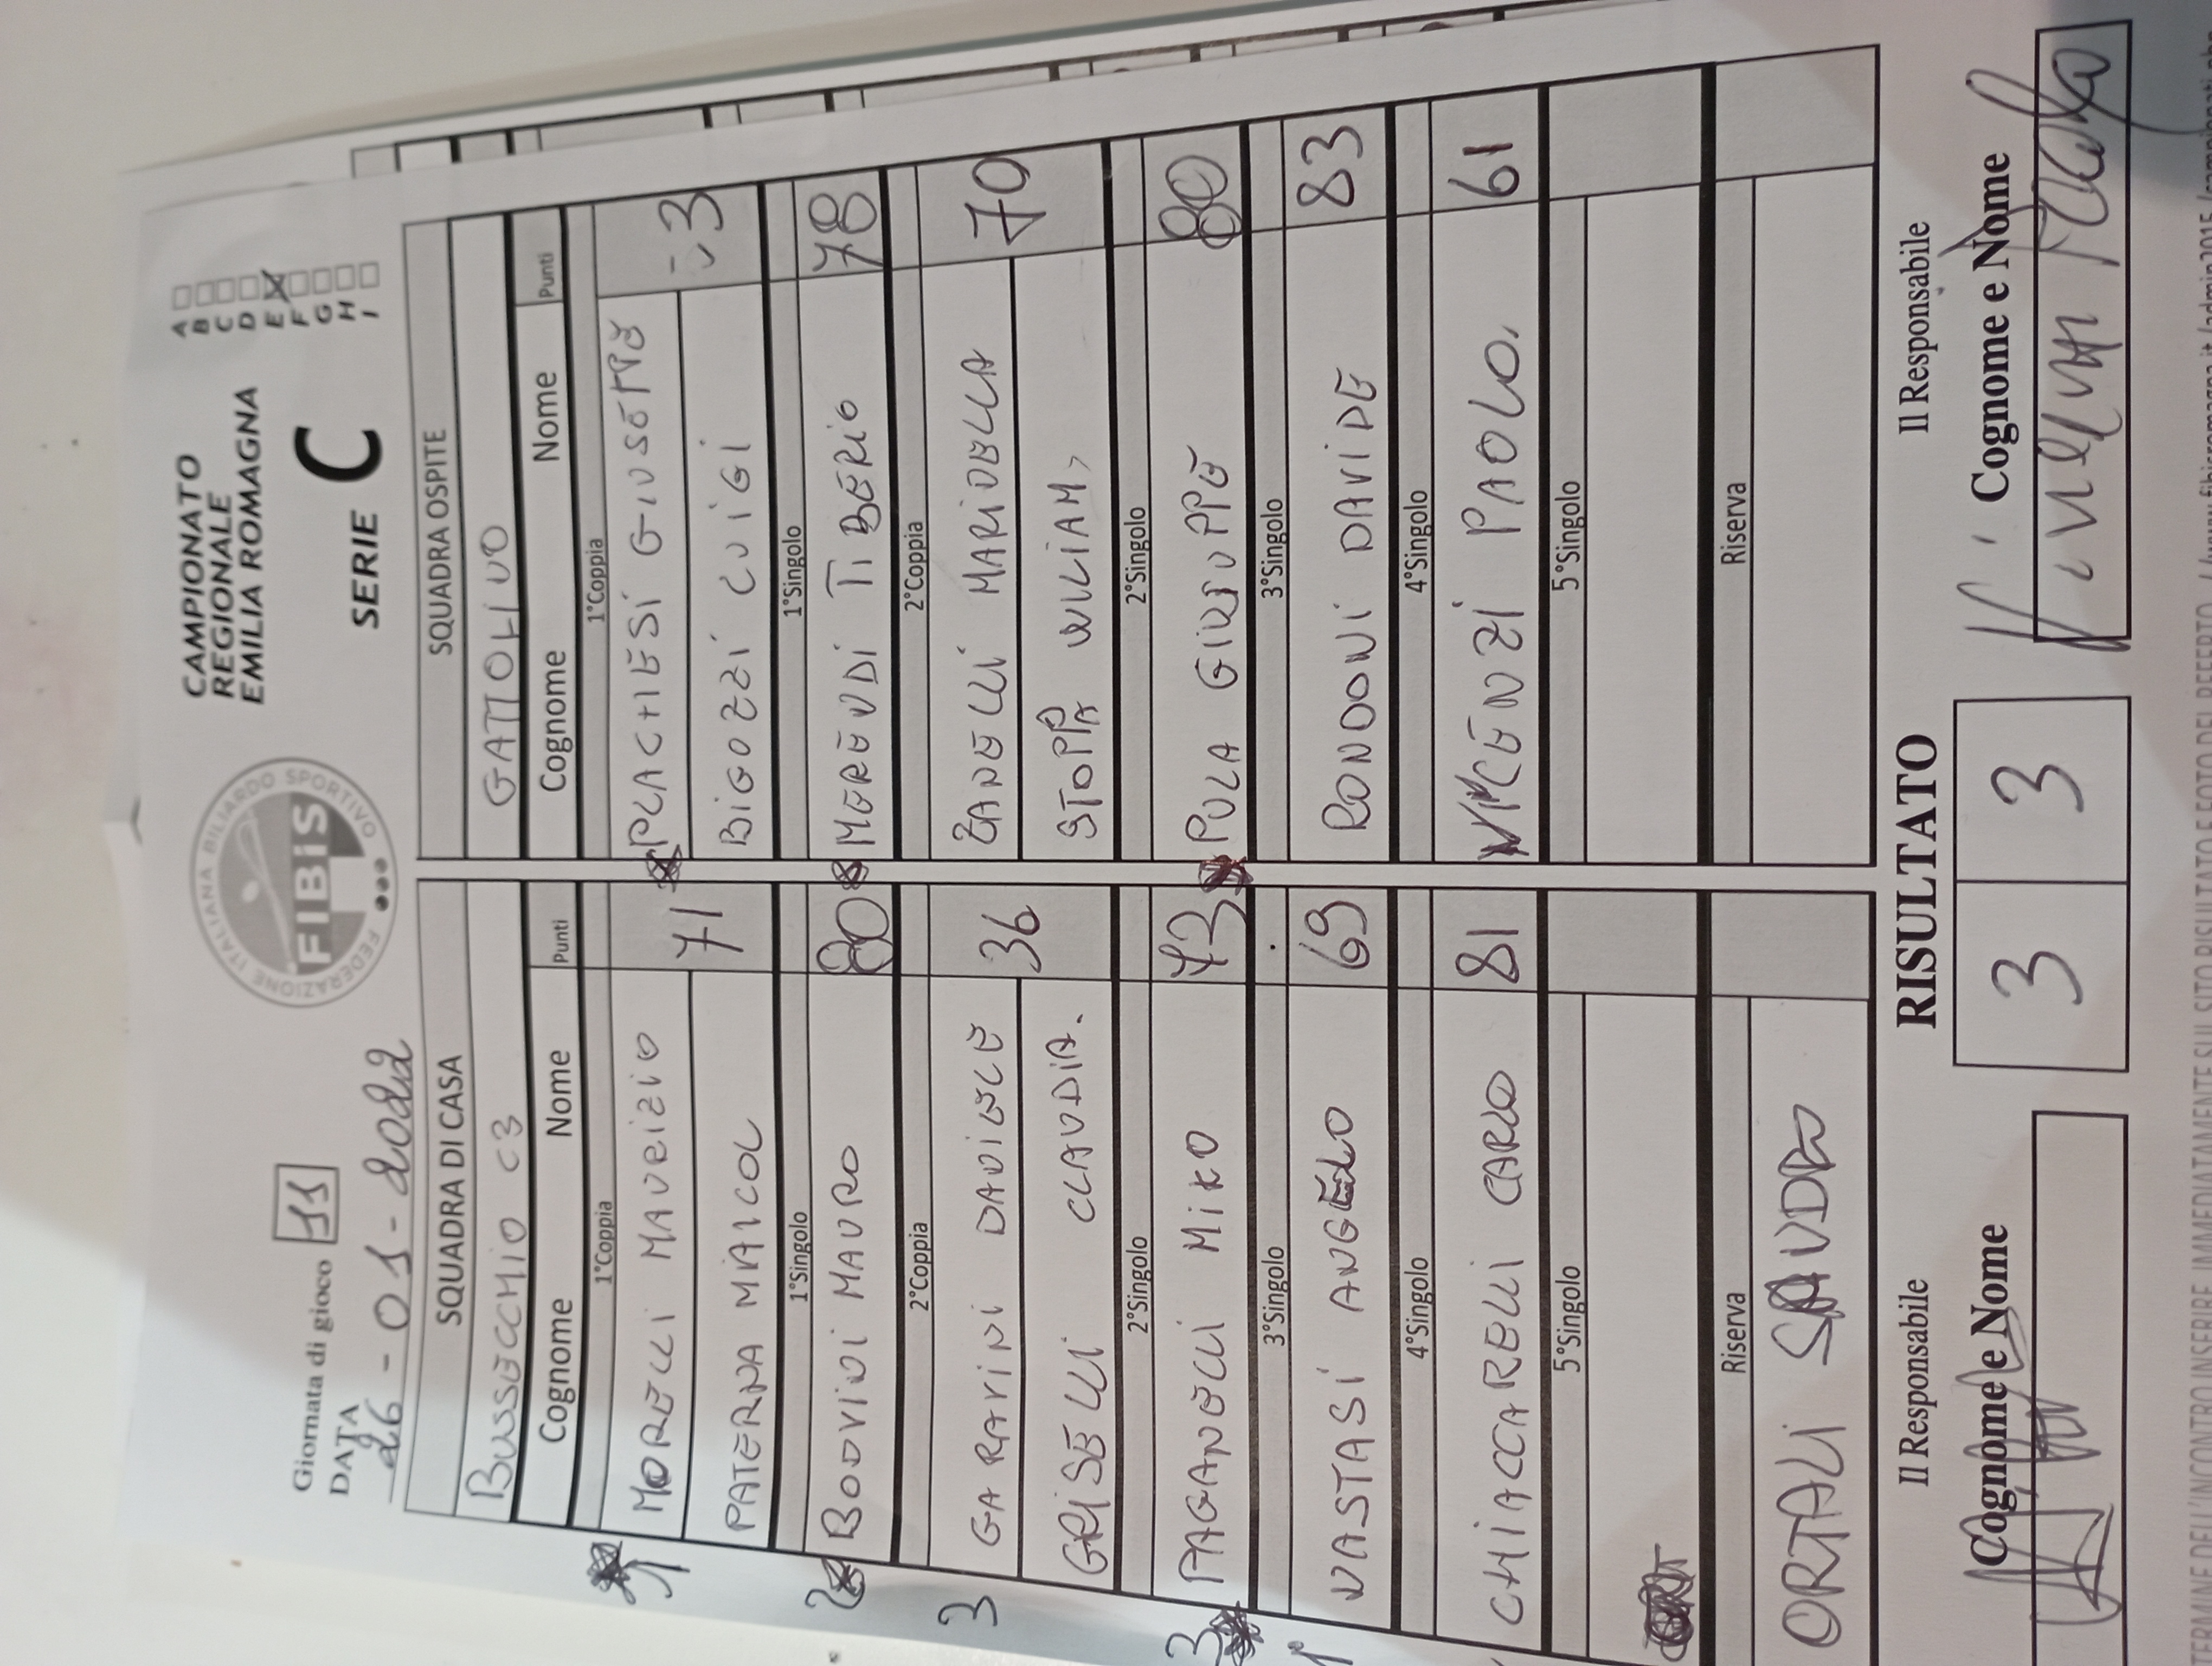 Giornata di gioco 11
DATA
26-01-2022
FEDERAZIONE ITALIANA BILIARDO SPORTIVO
FIBiS
CAMPIONATO
REGIONALE
EMILIA ROMAGNA
SERIE C
A
B
C
D
E
F
G
H
I
SQUADRA DI CASA SQUADRA OSPITE
BUSSECCHIO C3 GATTOLINO
Cognome Nome Punti Cognome Nome Punti
1°Coppia 1°Coppia
MORELLI MAURIZIO PLACHESI GIUSEPPE
71
PATERNA MAICOL BIGOZZI LUIGI
1°Singolo 1°Singolo
BODVINI MAURO 80 MERENDI TIBERIO 78
2°Coppia 2°Coppia
3 GARAVINI DANIELE ZANELLI MARINELLA
36 70
GRISELLI CLAUDIA. STOPPA WILIAM
2°Singolo 2°Singolo
3 PAGANELLI MIKO 43 PULA GIUSEPPE 80
3°Singolo 3°Singolo
VASTASI ANGELO 69 RONDONI DAVIDE 83
4°Singolo 4°Singolo
CHIACCARELLI CARLO 81 VICENZI PAOLO. 61
5°Singolo 5°Singolo
Riserva Riserva
ORTALI SANDRO
Il Responsabile RISULTATO Il Responsabile
Cognome e Nome 3 3 Cognome e Nome
TERMINE DELL'INCONTRO INSERIRE IMMEDIATAMENTE SUL SITO RISULTATO E FOTO DEL REFERTO